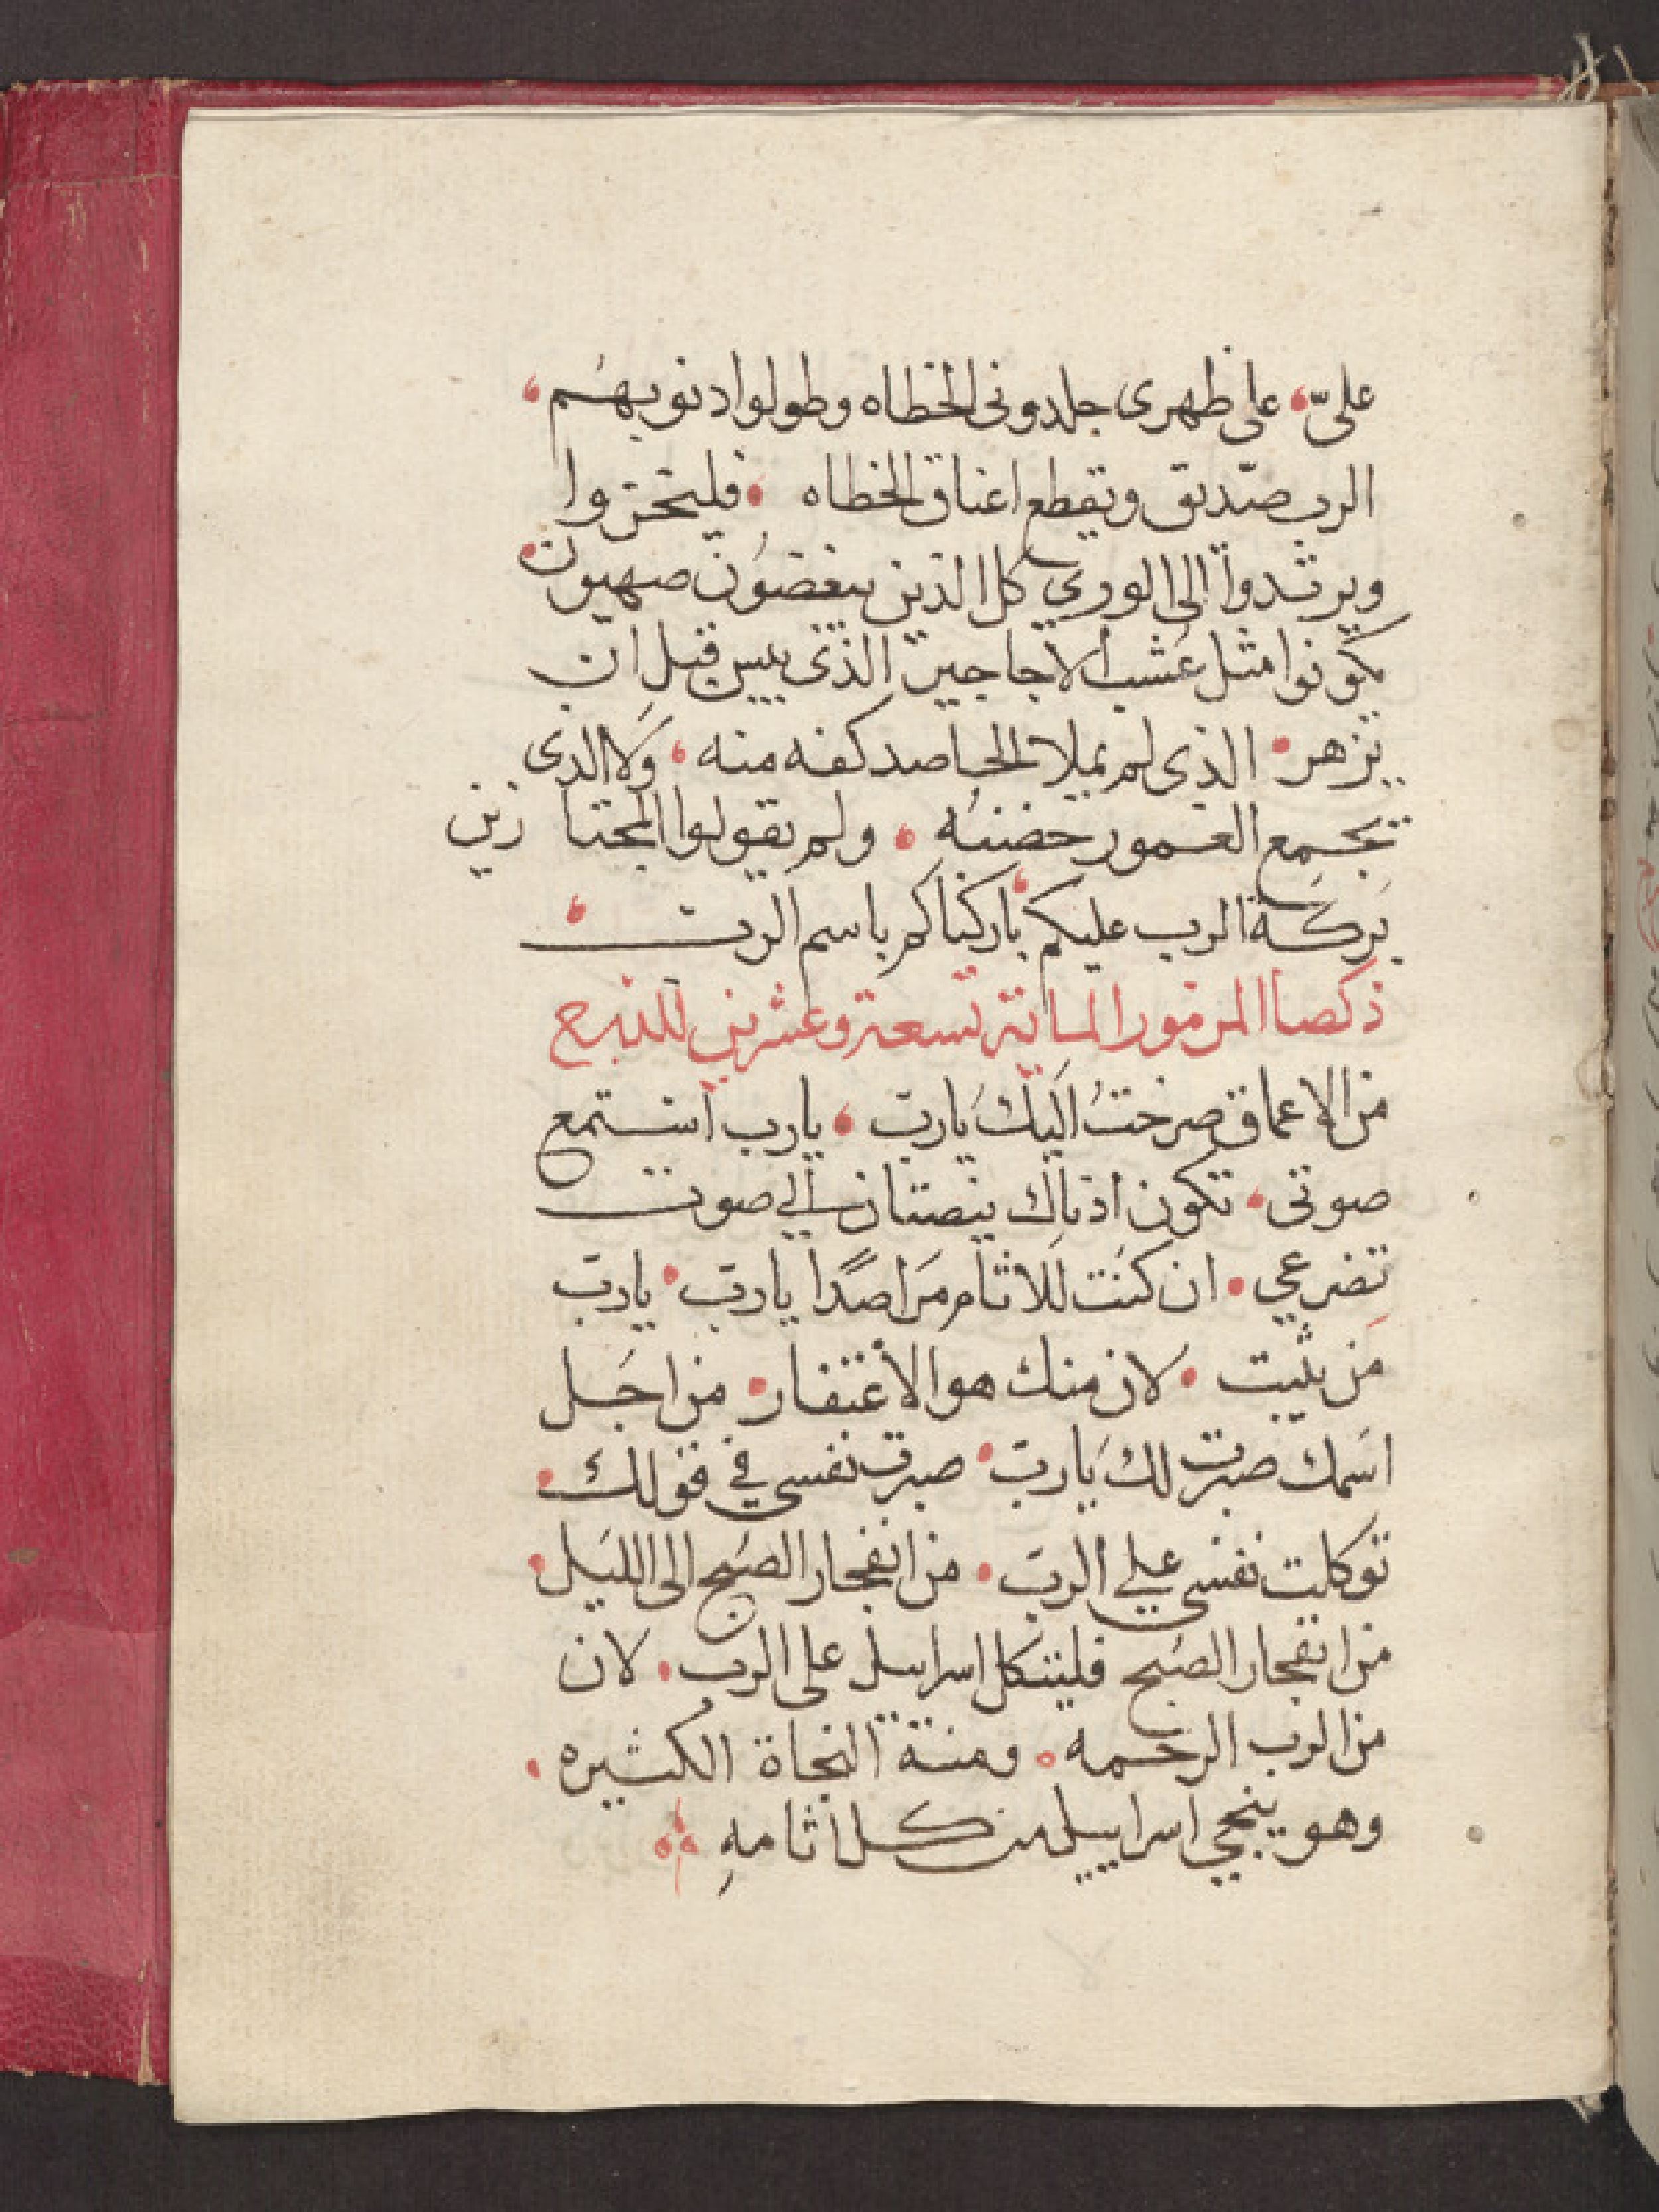 علىّ، على ظهرى جلدونى الخطاه وطولوا دنوبهُم،
الرب صدّيق ويقطع اعناق الخطاه • فليخزوا
ويرتدوا الى الورى كل الذين يبغضُون صهيون•
يكونوا مثل عُشب الاجاجير الذى ييبس قبل ان
يزهر• الذى لم يملا الحاصد كفه منه، وَلا الدى
يجمع الغمور حضنهُ، ولم يقولوا المجتازين
بَركَة الرب عليكم، باركناكم باسم الرب،
ذكصا المزمور الماية تسعة وعشرين للدرج
من الاعماق صرختُ اليكَ يَارب، يارب استمع
صوتى، تكون اذناك ينصتان الى صوت
تضرعي• ان كنت للاثام مَراصدًا يارب• يارب
مَن يثبت• لان منك هو الاغتفار• من اجَل
اسَمك صبرت لك يَارب• صبرت نفسى في قولك•
توكلت نفسى على الرب• من انفجار الصُبح الى الليَل•
من انفجار الصُبح فليتكل اسرايل على الرب• لان
من الرب الرحمه• ومنهُ النجاة الكثيره•
وهو ينجي اسراييل من كل اثامهِ